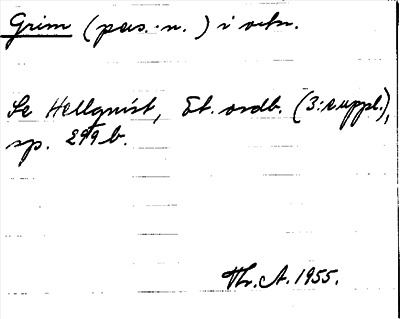 Grim (pers.-n.) i ortn.
Se Hellquist, Et. ordb. (3: suppl.),
sp. 299 b.
Th. A. 1955.